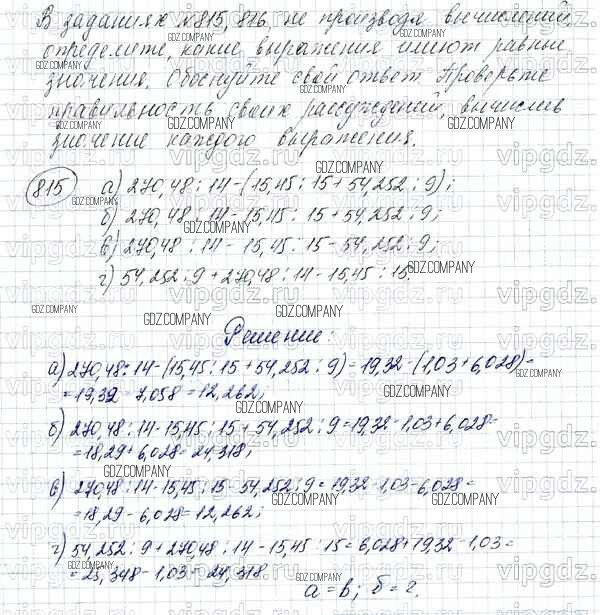 В заданиях №815, 816, не производя вычислений,
определите, какие выражения имеют равные
значения. Обоснуйте свой ответ. Проверьте
правильность своих рассуждений, вычислив
значение каждого выражения.
815 а) 270,48 : 14 - (15,45 : 15 + 54,252 : 9);
б) 270,48 : 14 - 15,45 : 15 + 54,252 : 9;
в) 270,48 : 14 - 15,45 : 15 - 54,252 : 9;
г) 54,252 : 9 + 270,48 : 14 - 15,45 : 15.
Решение:
а) 270,48 : 14 - (15,45 : 15 + 54,252 : 9) = 19,32 - (1,03 + 6,028) =
= 19,32 - 7,058 = 12,262;
б) 270,48 : 14 - 15,45 : 15 + 54,252 : 9 = 19,32 - 1,03 + 6,028 =
= 18,29 + 6,028 = 24,318;
в) 270,48 : 14 - 15,45 : 15 - 54,252 : 9 = 19,32 - 1,03 - 6,028 =
= 18,29 - 6,028 = 12,262;
г) 54,252 : 9 + 270,48 : 14 - 15,45 : 15 = 6,028 + 19,32 - 1,03 =
= 25,348 - 1,03 = 24,318.
а = в; б = г.
GDZ.COMPANY
vipgdz.ru